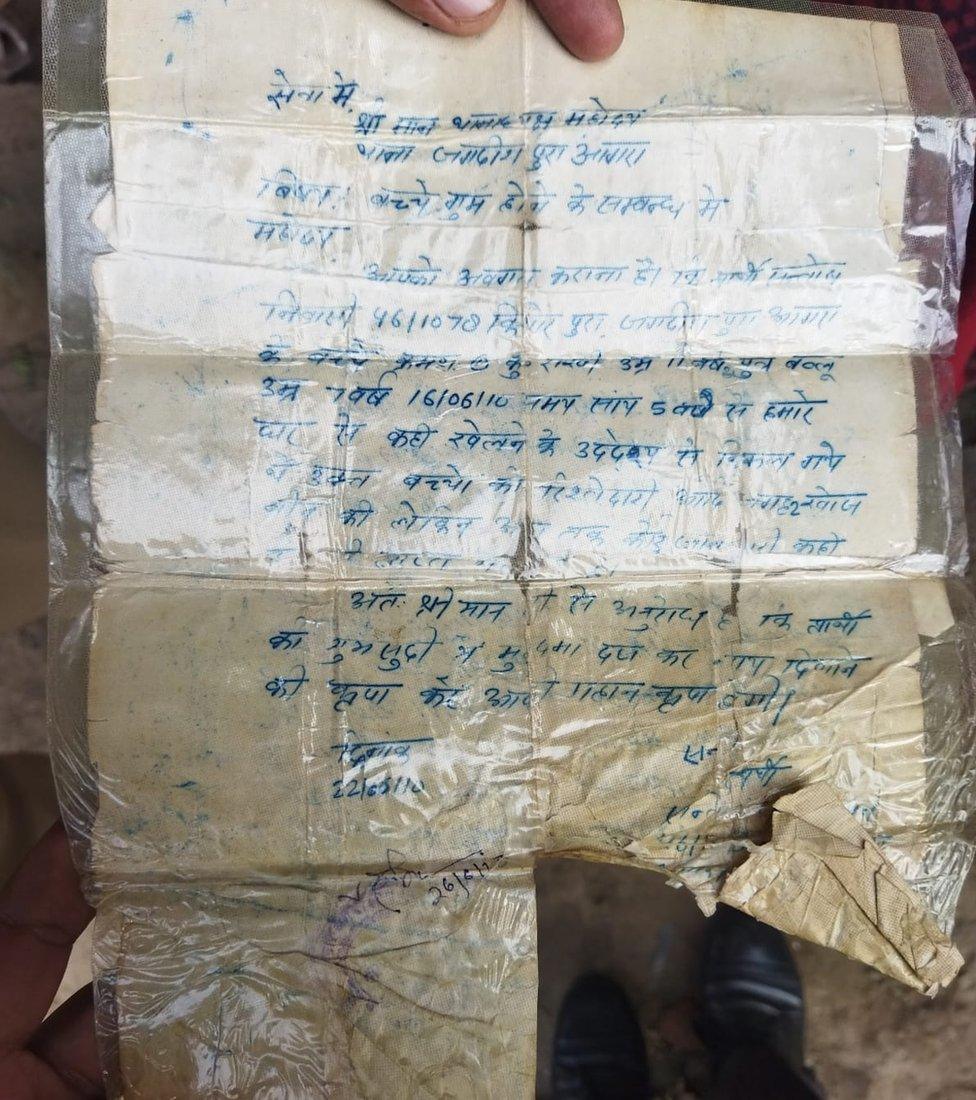 सेवा में,
श्री मान थानाध्यक्ष महोदय
थाना जगदीश पुरा आगरा
विषय: बच्चे गुम होने के सम्बन्ध में
महोदय
आपको अवगत कराना है। कि प्रार्थी सन्तोष
निवासी 46/107B किशोर पुरा जगदीश पुरा आगरा
के बच्चे क्रमश कु० राखी उम्र 11 वर्ष पुत्र बब्लू
उम्र 7 वर्ष 16/06/10 समय सांय 5 बजे से हमारे
घर से कहीं खेलने के उददेश्य से निकल गये
थे उक्त बच्चो की रिश्तेदारी आदि जगह2 खोज
बीन की लेकिन आज तक कोई कही
अतः श्री मान से अनुरोध है कि प्रार्थी
की गुमसुदी में दर्ज कर दिलाने
की कृपा करें महान कृपा होगी।
दिनांक
22/06/10
26/6/1